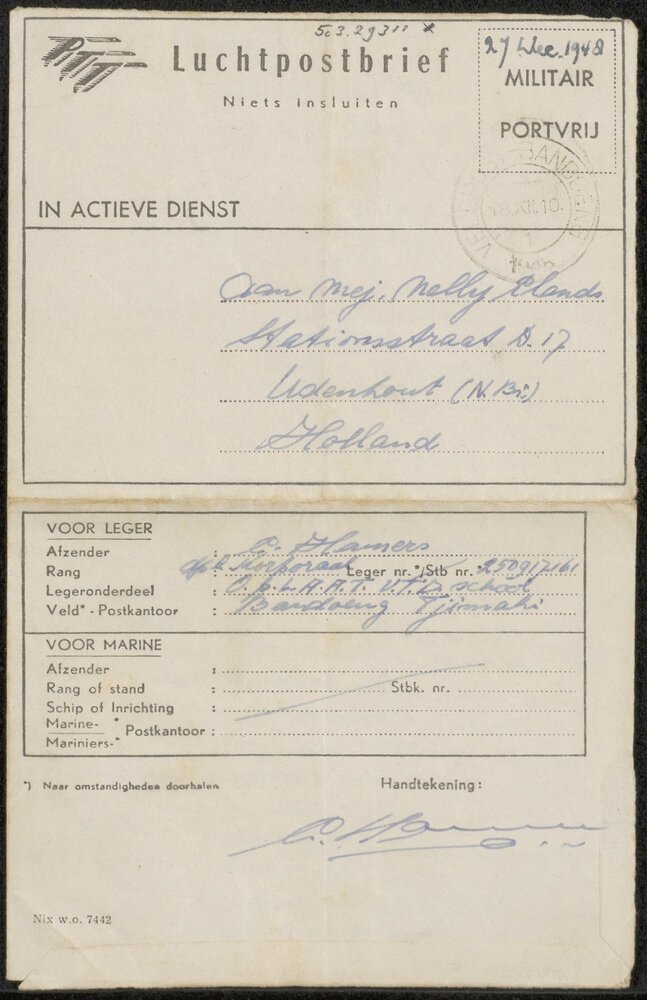 5c3.29311 x
PTT
Luchtpostbrief
Niets insluiten
27 Dec. 1948
MILITAIR
PORTVRIJ
IN ACTIEVE DIENST
Aan Mej. Nelly
Stationsstraat D. 17
Udenhout (N.Br.)
Holland
VOOR LEGER
Afzender : C. Hamers
Rang : Korporaal Leger nr.*/Stb nr. 250917161
Legeronderdeel : school
Veld* - Postkantoor : Bandoeng Tjimahi
VOOR MARINE
Afzender :
Rang of stand : Stbk. nr.
Schip of Inrichting :
Marine-* Postkantoor :
Mariniers-*
*) Naar omstandigheden doorhalen
Handtekening:
C. Hamers
Nix w.o. 7442